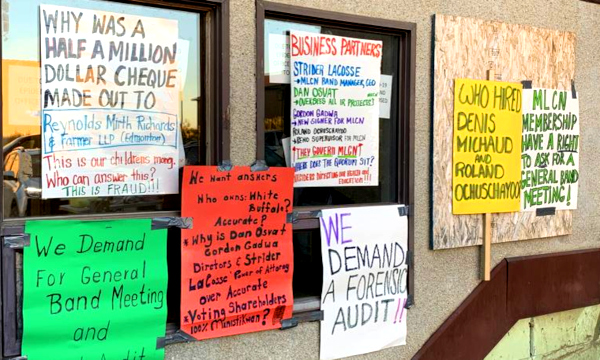 WHY WAS A
HALF A MILLION
DOLLAR CHEQUE
MADE OUT TO
Reynolds Mirth Richards
& Farmer LLP (Edmonton)
This is our childrens money.
Who can answer this?
THIS IS FRAUD!!!
BUSINESS PARTNERS
STRIDER LACOSSE
→ MLCN BAND MANAGER, CEO
DAN OSVAT
→ OVERSEES ALL OF PROJECTS
GORDON GADWA
→ NEW SIGNER FOR MLCN
ROLAND OCHUSCHAYOO
SUPERVISOR FOR MLCN
THEY GOVERN MLCN?
WHERE DOES THE QUORUM SIT?
OUTSIDERS DICTATING OUR HEALTH AND
EDUCATION!!!
WHO HIRED
DENIS
MICHAUD
AND
ROLAND
OCHUSCHAYOO
MLCN
MEMBERSHIP
HAVE A RIGHT
TO ASK FOR A
GENERAL BAND
MEETING!
We Demand
For General
Band Meeting
and
Audit
We want answers
Who owns: White
Buffalo?
Accurate?
* Why is Dan Osvat
Gordon Gadwa
Diretors & Strider
LaCosse Power of Attorney
over Accurate
* Voting Shareholders
100% Manistikwan?
WE
DEMAND
A FORENSIC
AUDIT!!